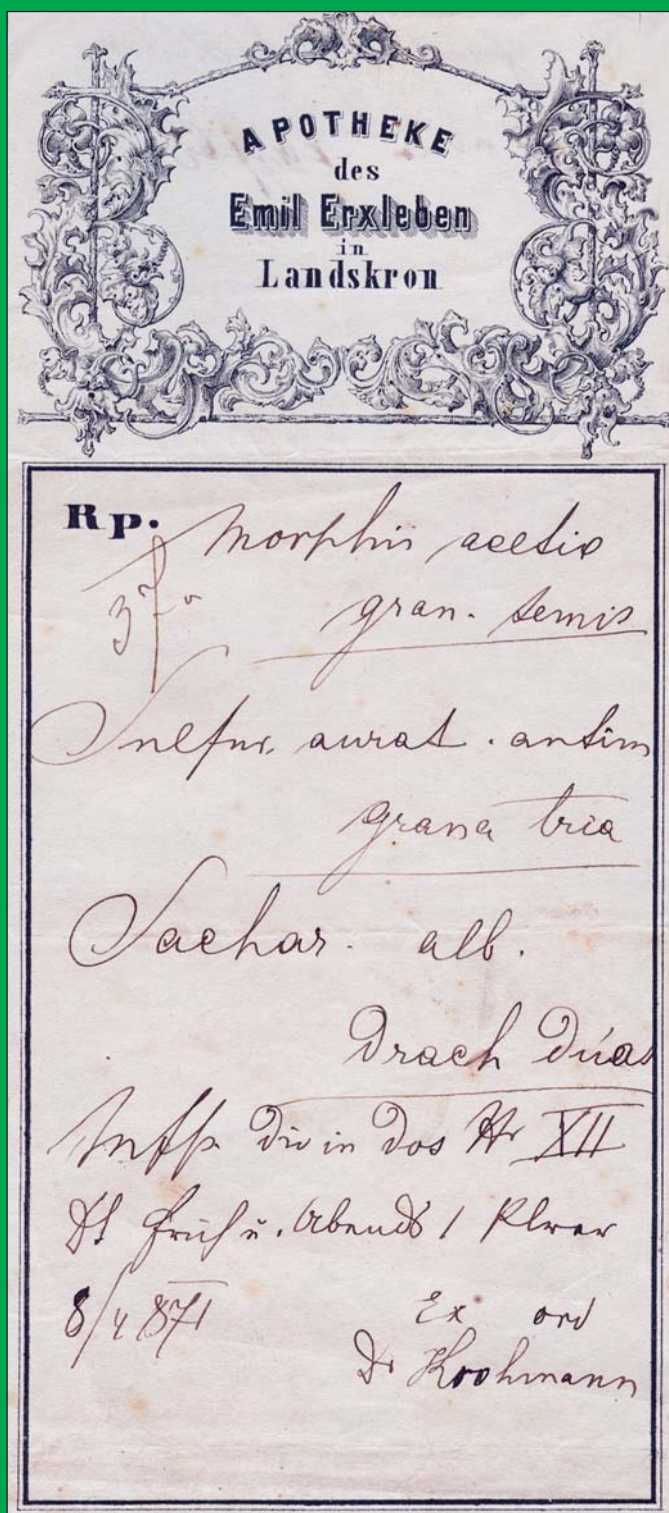 APOTHEKE
des
Emil Erxleben
in
Landskron
Rp. Morphii acetic
gran. semis
37
Sulfur. aurat. antim
grana tria
Sachar. alb.
Drach Duas
Mfp. Div in Dos Nr XII
DS früh u. Abends 1 Plver
8/4 871 Ex ord
Dr